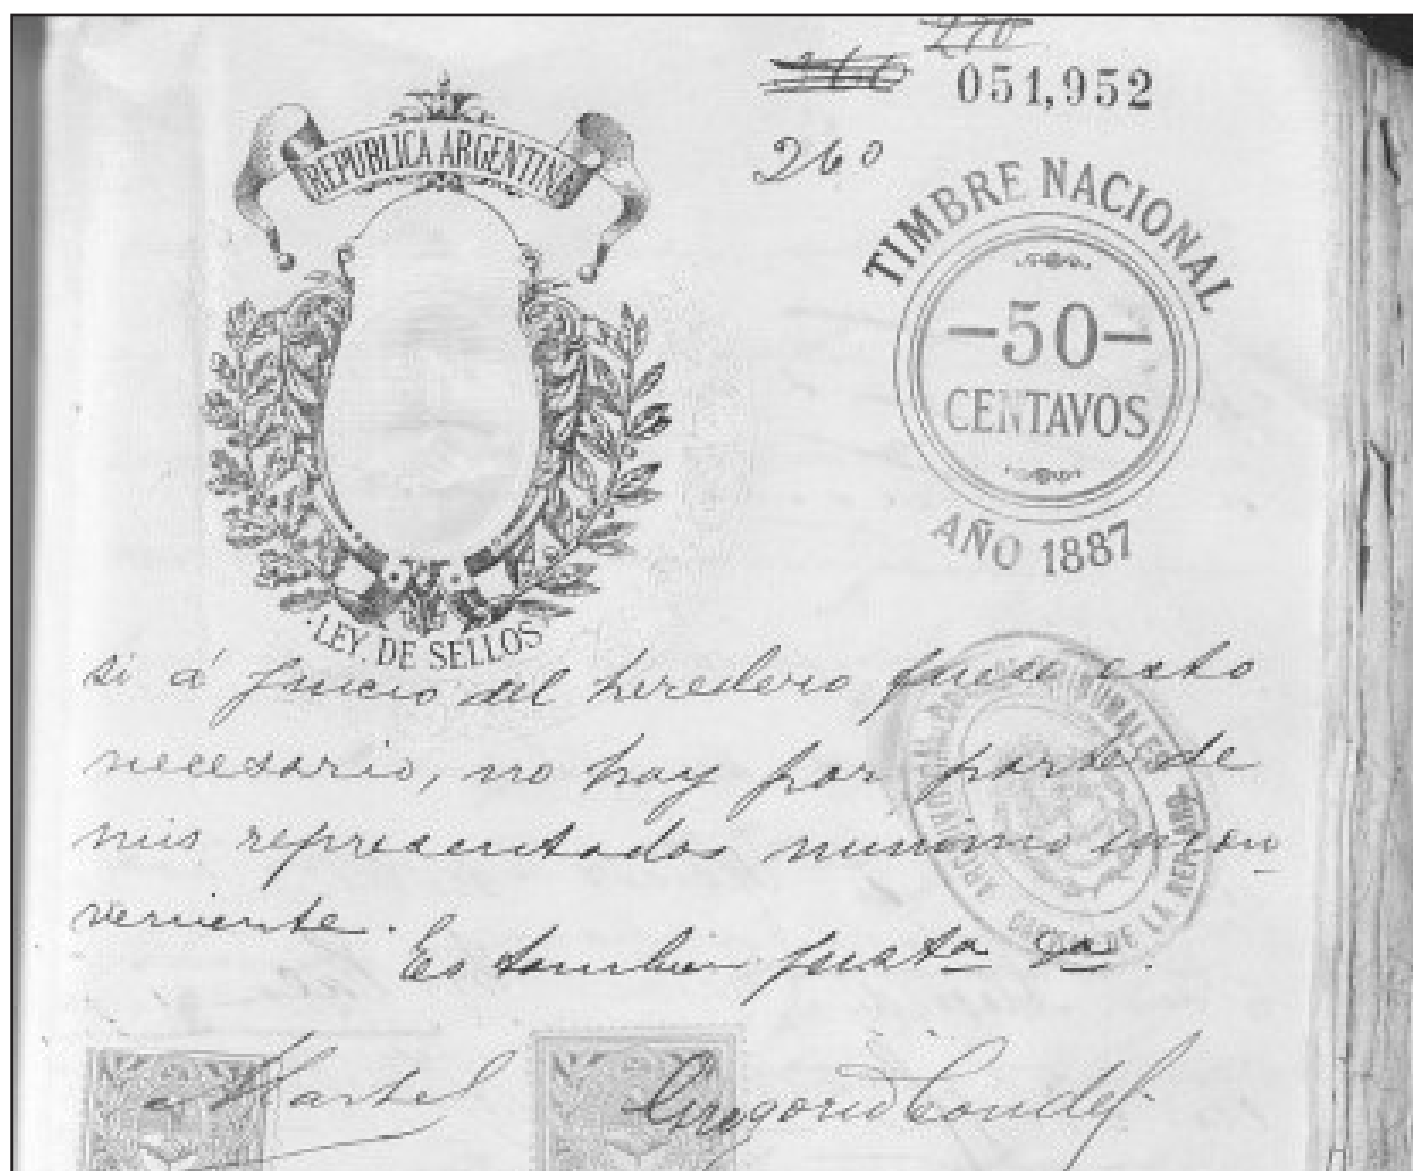 270
266
051,952
260
REPUBLICA ARGENTINA
TIMBRE NACIONAL
—50—
CENTAVOS
AÑO 1887
·LEY. DE SELLOS·
si á juicio del heredero fuese esto
necesario, no hay por parte de
mis representados mínimo incon
veniente.
Es tambien justa
DE LA REP. ARG.
Gregorio Condef